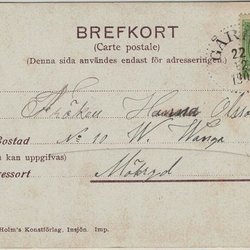 BREFKORT
(Carte postale)
(Denna sida användes endast för adresseringen.)
GÄR
22
12
Fröken Hanna Olsso
Bostad No 10 W. Wånga
n kan uppgifvas)
ressort Möbryd
Holm's Konstförlag, Insjön. Imp.